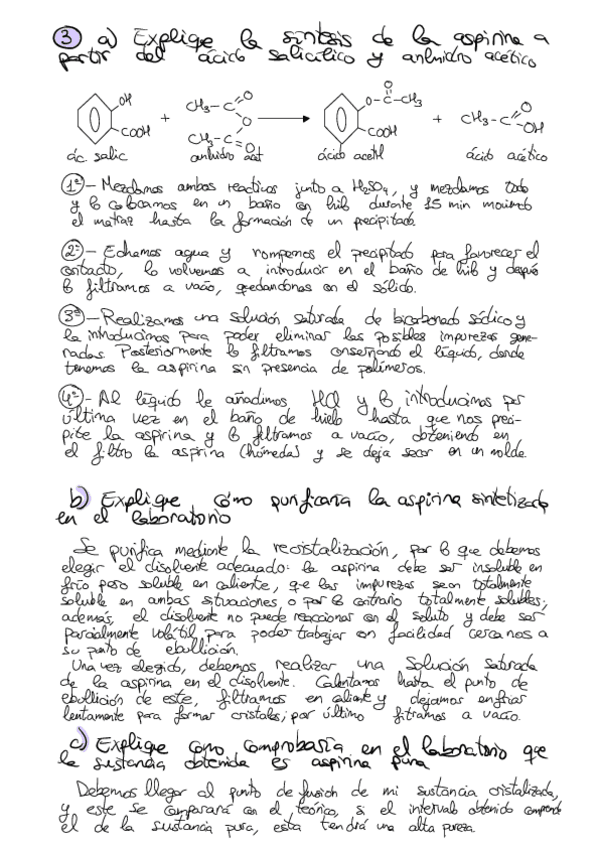 3 a) Explique la síntesis de la aspirina a
partir del ácido salicílico y anhidro acético
OH
COOH
+
CH3-C=O
O
CH3-C=O
O-C-CH3
O
COOH
+
CH3-C=O
OH
ác. salic
anhidro acet
ácido acetil
ácido acético
1º- Mezclamos ambos reactivos junto a H2SO4, y mezclamos todo
y lo colocamos en un baño con hielo durante 15 min moviendo
el matraz hasta la formación de un precipitado.
2º- Echamos agua y rompemos el precipitado para favorecer el
contacto, lo volvemos a introducir en el baño de hielo y después
lo filtramos a vacío, quedándonos con el sólido.
3º- Realizamos una solución saturada de bicarbonato sódico y
la introducimos para poder eliminar las posibles impurezas gene-
radas. Posteriormente lo filtramos conservando el líquido, donde
tenemos la aspirina sin presencia de polímeros.
4º- Al líquido le añadimos HCl y lo introducimos por
última vez en el baño de hielo hasta que nos preci-
pite la aspirina y lo filtramos a vacío, obteniendo en
el filtro la aspirina (húmeda) y se deja secar en un molde.
b) Explique cómo purificaría la aspirina sintetizada
en el laboratorio
Se purifica mediante la recristalización, por lo que debemos
elegir el disolvente adecuado: la aspirina debe ser insoluble en
frío pero soluble en caliente, que las impurezas sean totalmente
soluble en ambas situaciones, o por lo contrario totalmente solubles;
además, el disolvente no puede reaccionar con el soluto y debe ser
parcialmente volátil para poder trabajar con facilidad cercanos a
su punto de ebullición.
Una vez elegido, debemos realizar una solución saturada
de la aspirina en el disolvente. Calentamos hasta el punto de
ebullición de este, filtramos en caliente y dejamos enfriar
lentamente para formar cristales; por último filtramos a vacío.
c) Explique como comprobaría en el laboratorio que
la sustancia obtenida es aspirina pura
Debemos llegar al punto de fusión de mi sustancia cristalizada,
y este se comparará con el teórico, si el intervalo obtenido comprende
el de la sustancia pura, esta tendrá una alta pureza.